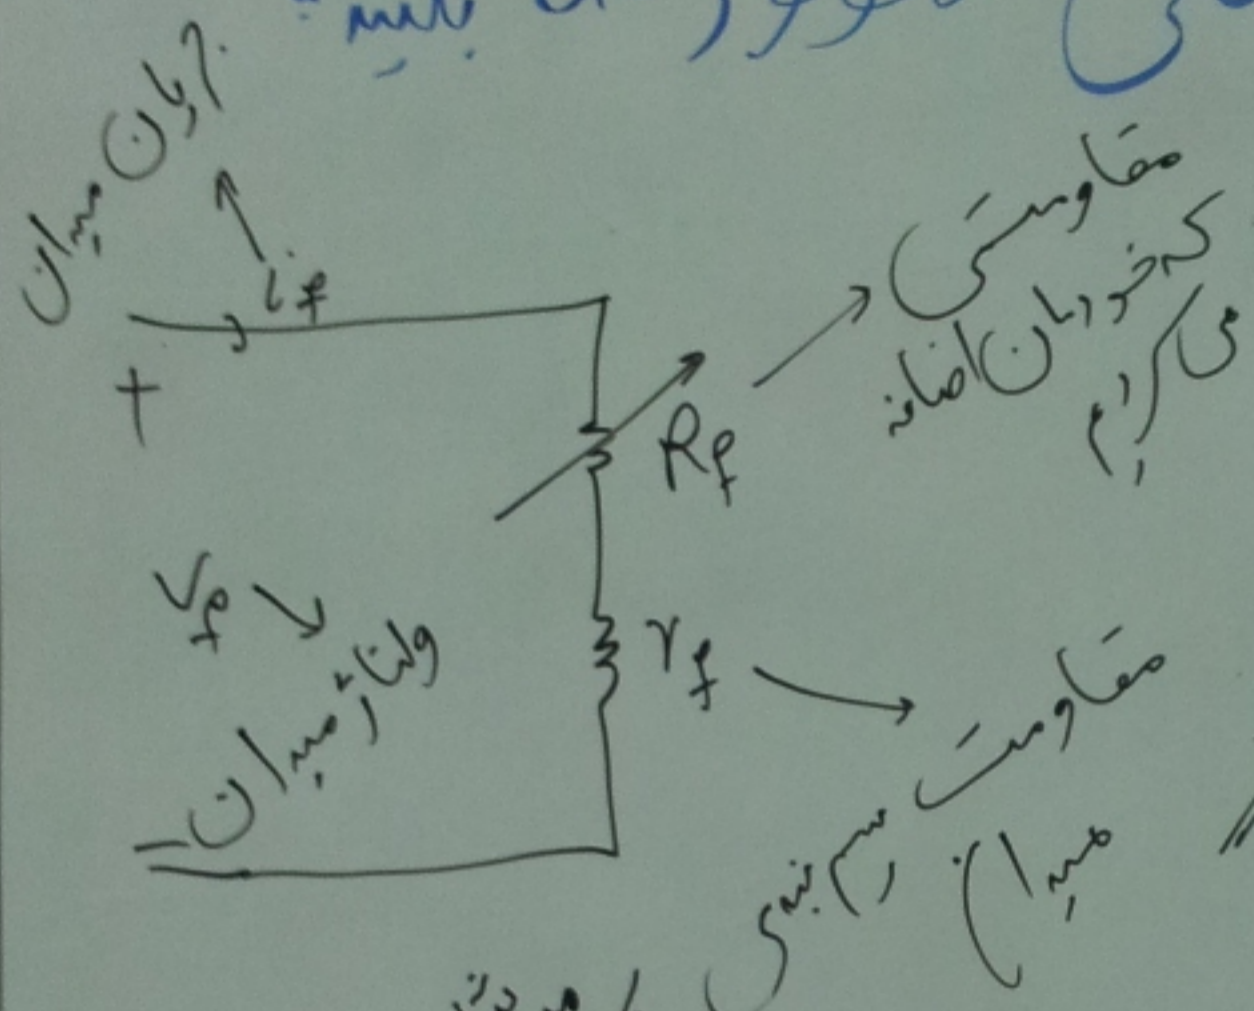 جریان میدان
if
+
Rf
مقاومتی
که خودمان اضافه
می کنیم
Vf
ولتاژ میدان
rf
مقاومت
سیم بندی
میدان